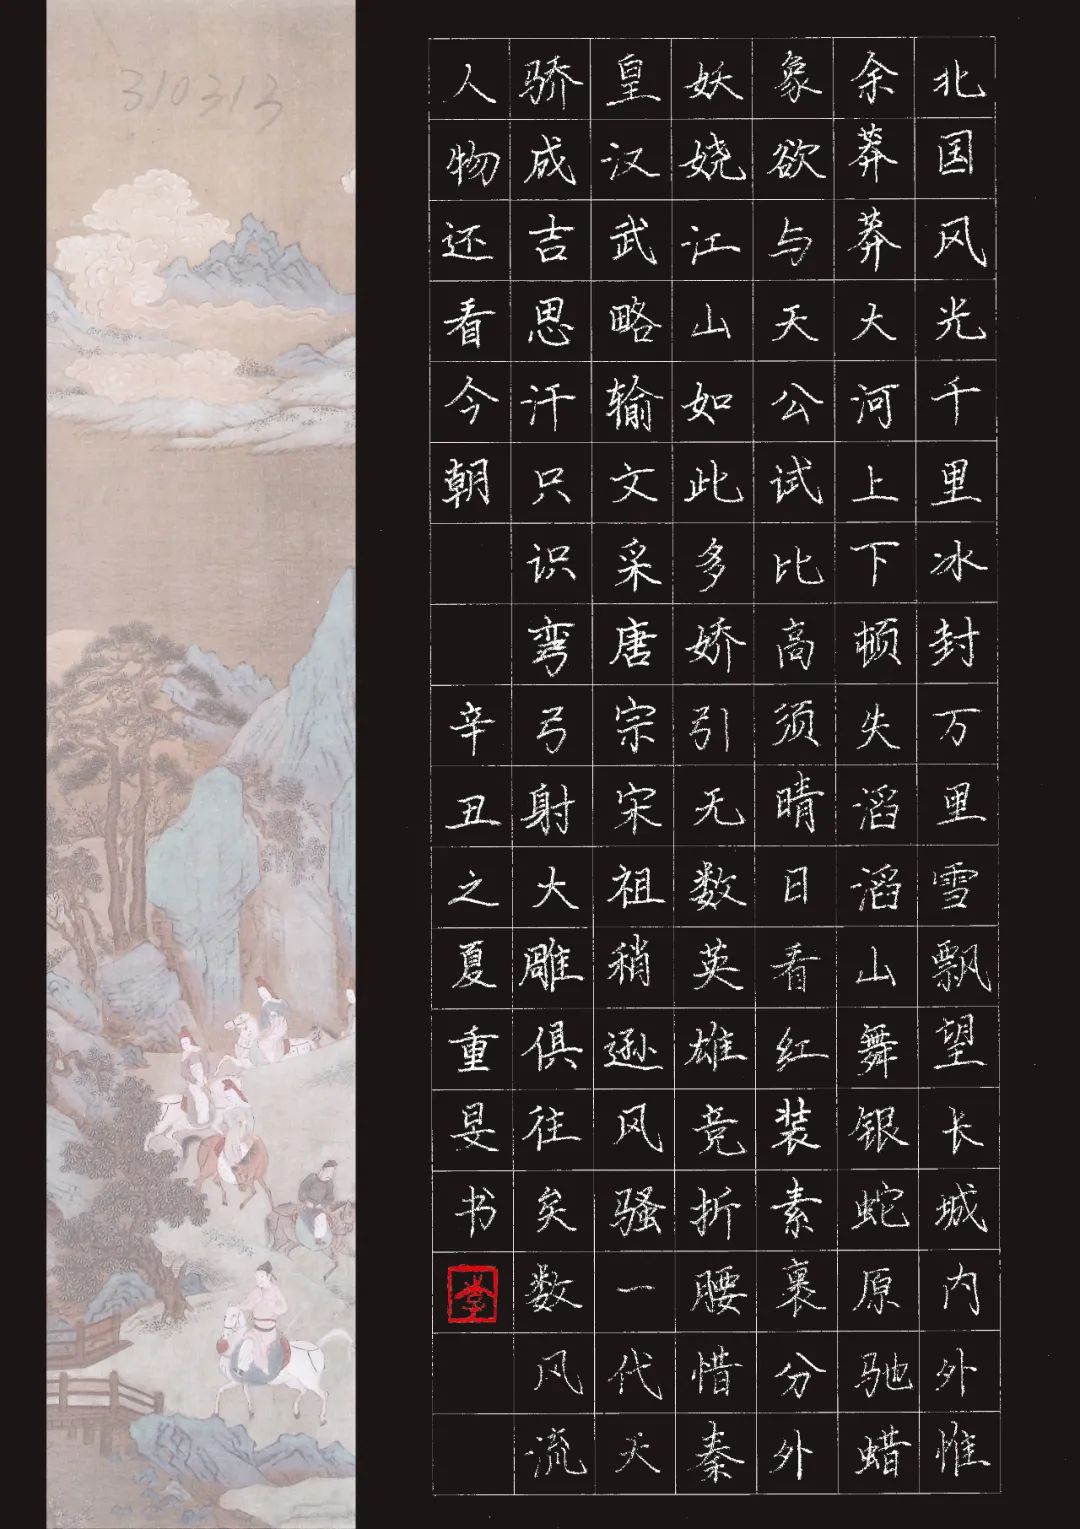 北国风光千里冰封万里雪飘望长城内外惟
余莽莽大河上下顿失滔滔山舞银蛇原驰蜡
象欲与天公试比高须晴日看红装素裹分外
妖娆江山如此多娇引无数英雄竞折腰惜秦
皇汉武略输文采唐宗宋祖稍逊风骚一代天
骄成吉思汗只识弯弓射大雕俱往矣数风流
人物还看今朝 辛丑之夏重旻书
310313